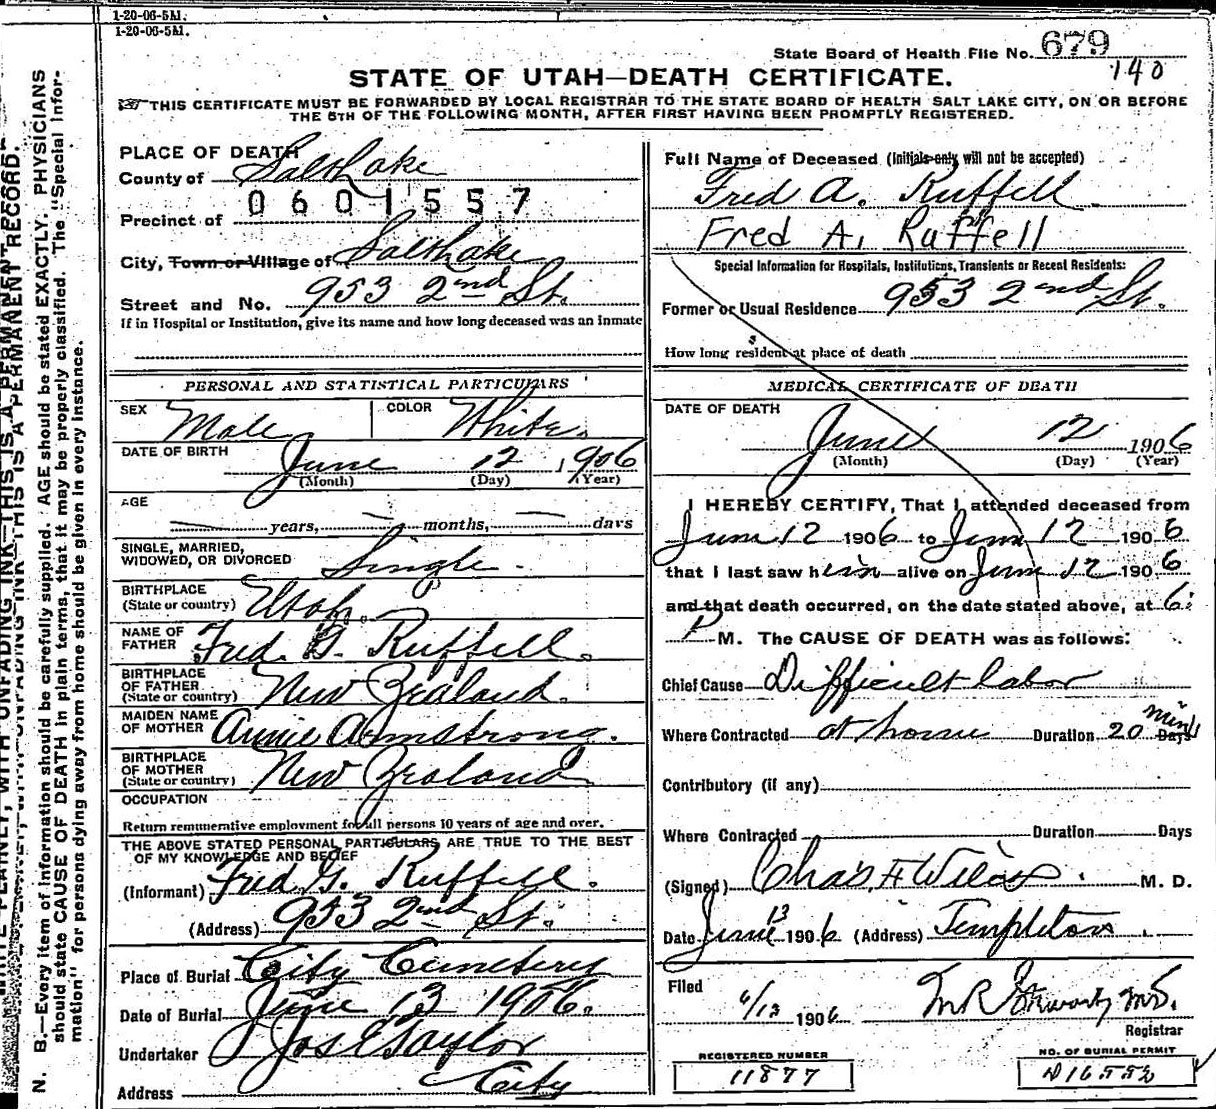 1-20-06-5M.
1-20-06-5M.
State Board of Health File No. 679
140
STATE OF UTAH—DEATH CERTIFICATE.
THIS CERTIFICATE MUST BE FORWARDED BY LOCAL REGISTRAR TO THE STATE BOARD OF HEALTH SALT LAKE CITY, ON OR BEFORE
THE 5TH OF THE FOLLOWING MONTH, AFTER FIRST HAVING BEEN PROMPTLY REGISTERED.
PLACE OF DEATH
County of Salt Lake
0601557
Precinct of
City, Town or Village of Salt Lake
Street and No. 953 2nd St.
If in Hospital or Institution, give its name and how long deceased was an inmate
PERSONAL AND STATISTICAL PARTICULARS
SEX Male COLOR White.
DATE OF BIRTH June 12, 1906
(Month) (Day) (Year)
AGE
— years, — months, — days
SINGLE, MARRIED,
WIDOWED, OR DIVORCED Single.
BIRTHPLACE
(State or country) Utah.
NAME OF
FATHER Fred. G. Ruffell.
BIRTHPLACE
OF FATHER
(State or country) New Zealand.
MAIDEN NAME
OF MOTHER Annie Armstrong.
BIRTHPLACE
OF MOTHER
(State or country) New Zealand
OCCUPATION
Return remunerative employment for all persons 10 years of age and over.
THE ABOVE STATED PERSONAL PARTICULARS ARE TRUE TO THE BEST
OF MY KNOWLEDGE AND BELIEF
(Informant) Fred G. Ruffell.
(Address) 953 2nd St.
Place of Burial City Cemetery
Date of Burial June 13 1906.
Undertaker Jos E Taylor
Address City
Full Name of Deceased (Initials only will not be accepted)
Fred A. Ruffell
Fred A. Ruffell
Special Information for Hospitals, Institutions, Transients or Recent Residents:
Former or Usual Residence 953 2nd St.
How long resident at place of death
MEDICAL CERTIFICATE OF DEATH
DATE OF DEATH
June 12 1906
(Month) (Day) (Year)
I HEREBY CERTIFY, That I attended deceased from
June 12 1906 to June 12 1906
that I last saw him alive on June 12 1906
and that death occurred, on the date stated above, at 6:
P M. The CAUSE OF DEATH was as follows:
Chief Cause Difficult labor
Where Contracted at home Duration 20 Days min
Contributory (if any)
Where Contracted Duration Days
(Signed) Chas F Wilcox. M. D.
Date June 13 1906 (Address) Templeton
Filed
6/13 1906 M.D.
Registrar
REGISTERED NUMBER
11877
NO. OF BURIAL PERMIT
N. B.—Every item of information should be carefully supplied. AGE should be stated EXACTLY. PHYSICIANS
should state CAUSE OF DEATH in plain terms, that it may be properly classified. The "Special Infor-
mation" for persons dying away from home should be given in every instance.
WRITE PLAINLY, WITH UNFADING INK—THIS IS A PERMANENT RECORD.